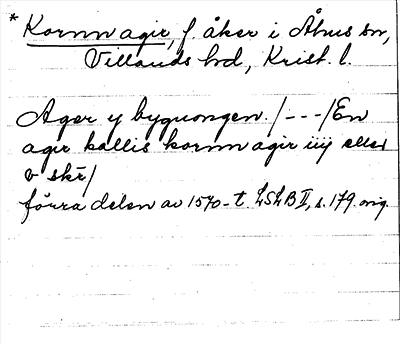 * Kornn agir, f. åker i Åhus sn,
Villands hd, Krist. l.
Ager y byguongen. /---/ En
agir kallis kornn agir iiij eller
v skr̄ /
förra delen av 1570-t. LSLB II, s. 179. orig.